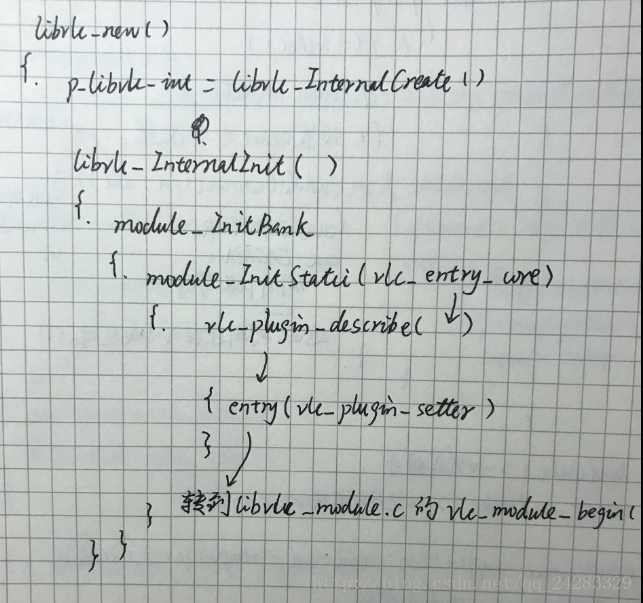 libvlc_new()
{. p_libvlc_int = libvlc_InternalCreate()
libvlc_InternalInit( )
{. module_InitBank
{. module_InitStatic(vlc_entry_core)
{. vlc_plugin_describe( ↓ )
↓
{ entry(vlc_plugin_setter)
}
} 转到libvlc_module.c 的 vlc_module_begin(
} }
https://blog.csdn.net/qq_24283329